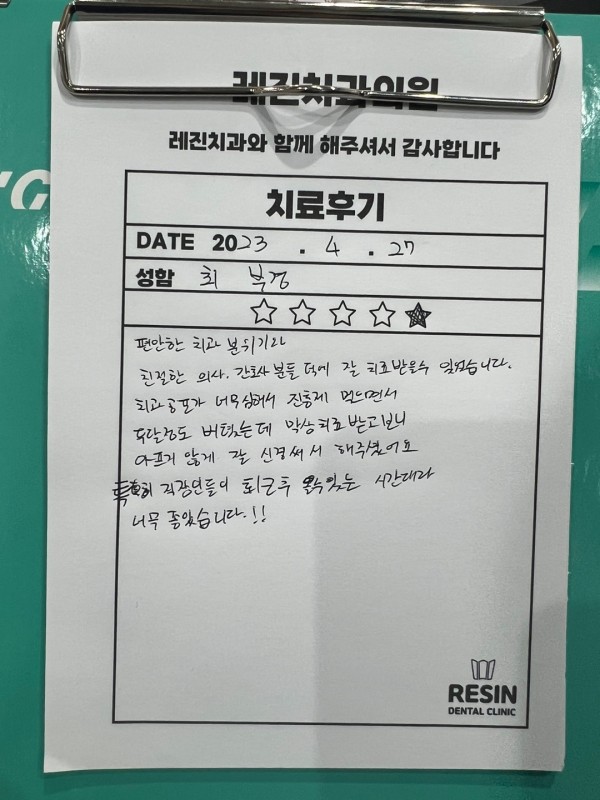 레진치과의원
레진치과와 함께 해주셔서 감사합니다
치료후기
DATE 2023 . 4 . 27
성함 최 부경
편안한 치과 분위기와
친절한 의사, 간호사 분들 덕에 잘 치료받을수 있었습니다.
치과공포가 너무심해서 진통제 먹으면서
두달정도 버텼는데 막상치료받고보니
아프지 않게 잘 신경써서 해주셨어요
특히 직장인들이 퇴근후 올수있는 시간대라
너무 좋았습니다.!!
RESIN
DENTAL CLINIC